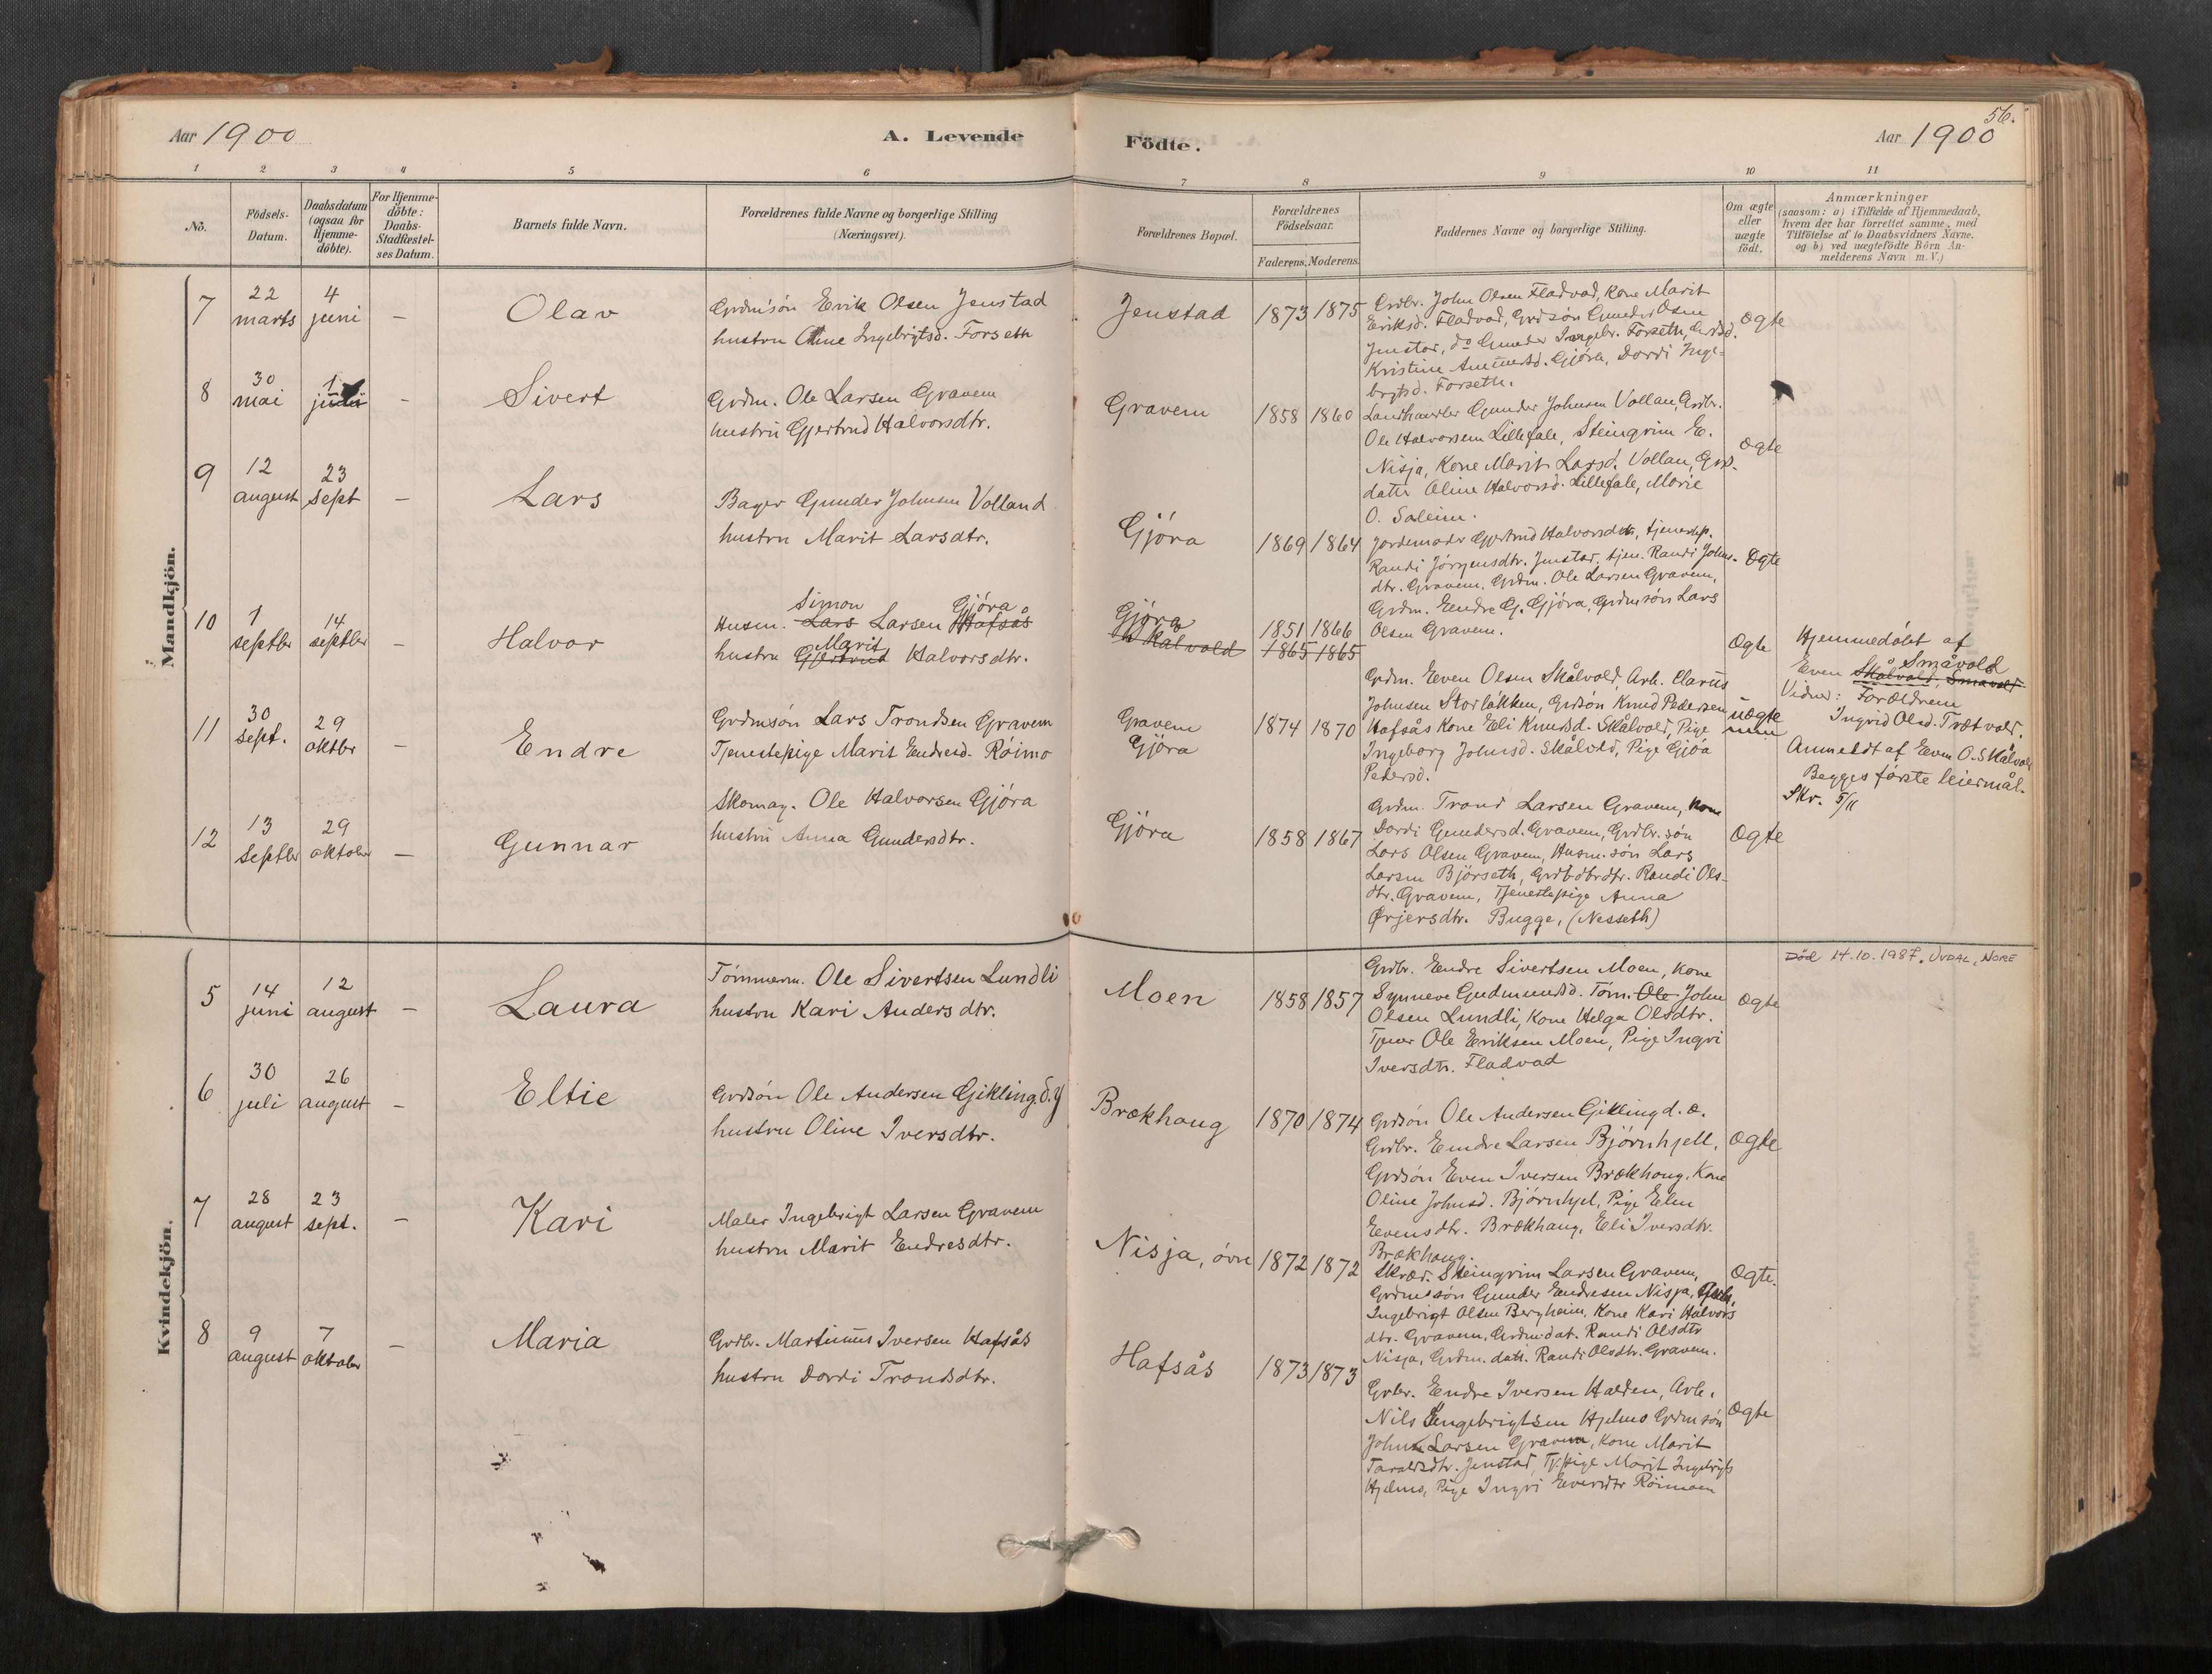 56.
Aar 1900
A. Levende
Födte.
Aar 1900
1
2
3
4
5
6
7
8
9
10
11
No.
Födsels-
Datum.
Daabsdatum
(ogsaa for
Hjemme-
döbte).
For Hjemme-
döbte:
Daabs-
Stadfæstel-
ses Datum.
Barnets fulde Navn.
Forældrenes fulde Navne og borgerlige Stilling
(Næringsvei).
Forældrenes Bopæl.
Forældrenes
Födselsaar.
Faderens. Moderens.
Faddernes Navne og borgerlige Stilling.
Om ægte
eller
uægte
født.
Anmærkninger
(saasom: a) i Tilfælde af Hjemmedaab,
hvem der har forrettet samme, med
Tilföielse af to Daabsvidners Navne,
og b) ved uægtefödte Börn An-
melderens Navn m. V.)
Mandkjön.
7
22
marts
4
juni
–
Olav
Grdmsön Erik Olsen Jenstad
hustru Oline Ingebrigtsd. Forseth
Jenstad
1873 1875
Grdbr. John Olsen Fladvad, Kone Marit
Eriksd. Fladvad, Grdsön Gunder Olsen
Jenstad, do Gunder Ingebr. Forseth, Grdsd.
Kristine Amundsd. Gjöra, Dordi Inge-
brigtsd. Forseth.
Ægte
8
30
mai
1
juli
–
Sivert
Grdm. Ole Larsen Gravem
hustru Gjertrud Halvorsdtr.
Gravem
1858 1860
Landhandler Gunder Johnsen Vollan, Grdbr.
Ole Halvorsen Lillefale, Steingrim E.
Nisja, Kone Marit Larsd. Vollan, Grd-
datter Oline Halvorsd. Lillefale, Marie
O. Saleim.
Ægte
9
12
august
23
sept
–
Lars
Bager Gunder Johnsen Volland
hustru Marit Larsdtr.
Gjöra
1869 1864
Jordemoder Gjertrud Halvorsdtr, tjenestep.
Randi Jörgensdtr. Jenstad, tjen. Randi Johns-
dtr. Gravem, Grdm. Ole Larsen Gravem,
Grdm. Endre G. Gjöra, Grdmsön Lars
Olsen Gravem.
Ægte
10
1
septbr
14
septbr
–
Halvor
Simon Gjöra
Husm. Lars Larsen Hafsås
Marit
hustru Gjertrud Halvorsdtr.
Gjöra
Skålvold
1851 1866
1865 1865
Grdm. Even Olsen Skålvold, Arb. Clarus
Johnsen Storløkken, Grdsön Knud Pedersen
Hafsås Kone Eli Knudsd. Skålvold, Pige
Ingeborg Johnsd. Skålvold, Pige Gjöa
Petersd.
Ægte
Hjemmedöbt af
Småvold
Even Skålvold, Småvold
Vidner: Forældrene
Ingrid Olsd. Trætvold.
11
30
sept.
29
oktbr
–
Endre
Grdmsön Lars Trondsen Gravem
Tjenestepige Marit Endresd. Röimo
Gravem
Gjöra
1874 1870
uægte
Anmeldt af Even O. Skålvold
Begges förste leiermål.
Skr. 5/11
12
13
Septbr
29
oktober
–
Gunnar
Skomag. Ole Halvorsen Gjöra
hustru Anna Gundersdtr.
Gjöra
1858 1867
Grdm. Trond Larsen Gravem, Kone
Dordi Gundersd. Gravem, Grdbr. sön
Lars Olsen Gravem, Husm. sön Lars
Larsen Björseth, Grdbrdtr. Randi Ols-
dtr. Gravem, Tjenestepige Anna
Ørjersdtr. Bugge, (Nesseth)
Ægte
Kvindekjön.
5
14
juni
12
august
–
Laura
Tömmerm. Ole Sivertsen Lundli
hustru Kari Andersdtr.
Moen
1858 1857
Grdbr. Endre Sivertsen Moen, Kone
Synneve Gudmundsd. Töm. Ole John
Olsen Lundli, Kone Helga Olsdtr.
Tjener Ole Eriksen Moen, Pige Ingri
Iversdtr. Fladvad
Ægte
Död 14.10.1987, UVDAL, NORE
6
30
juli
26
august
–
Eltie
Grdsön Ole Andersen Gikling d.y
hustru Oline Iversdtr.
Brækhaug
1870 1874
Grdsön Ole Andersen Gikling d. æ.
Grdbr. Endre Larsen Björnhjell,
Grdsön Even Iversen Brækhaug, Kone
Oline Johnsd. Björnhjel, Pige Elen
Evensdtr. Brækhaug, Eli Iversdtr.
Brækhaug.
Ægte
7
28
august
23
sept.
–
Kari
Maler Ingebrigt Larsen Gravem
hustru Marit Endresdtr.
Nisja, övre
1872 1872
Skræd. Steingrim Larsen Gravem,
Grdmssön Gunder Endresen Nisja, Grdb.
Ingebrigt Olsen Bergheim, Kone Kari Halvors
dtr. Gravem, Grdm.dat. Randi Olsdtr
Nisja, Grdm. datt. Randi Olsdtr. Gravem.
Ægte.
8
9
august
7
oktober
–
Maria
Grdbr. Martinus Iversen Hafsås
hustru Dordi Trondsdtr.
Hafsås
1873 1873
Grbr. Endre Iversen Halden, Arb.
Nils Ingebrigtsen Hjelmo Grdmsön
John Larsen Gravem, Kone Marit
Taraldsdtr. Jenstad, Tj.Pige Marit Ingebrigts
Hjelmo, Pige Ingri Eversdtr Röimoen
Ægte